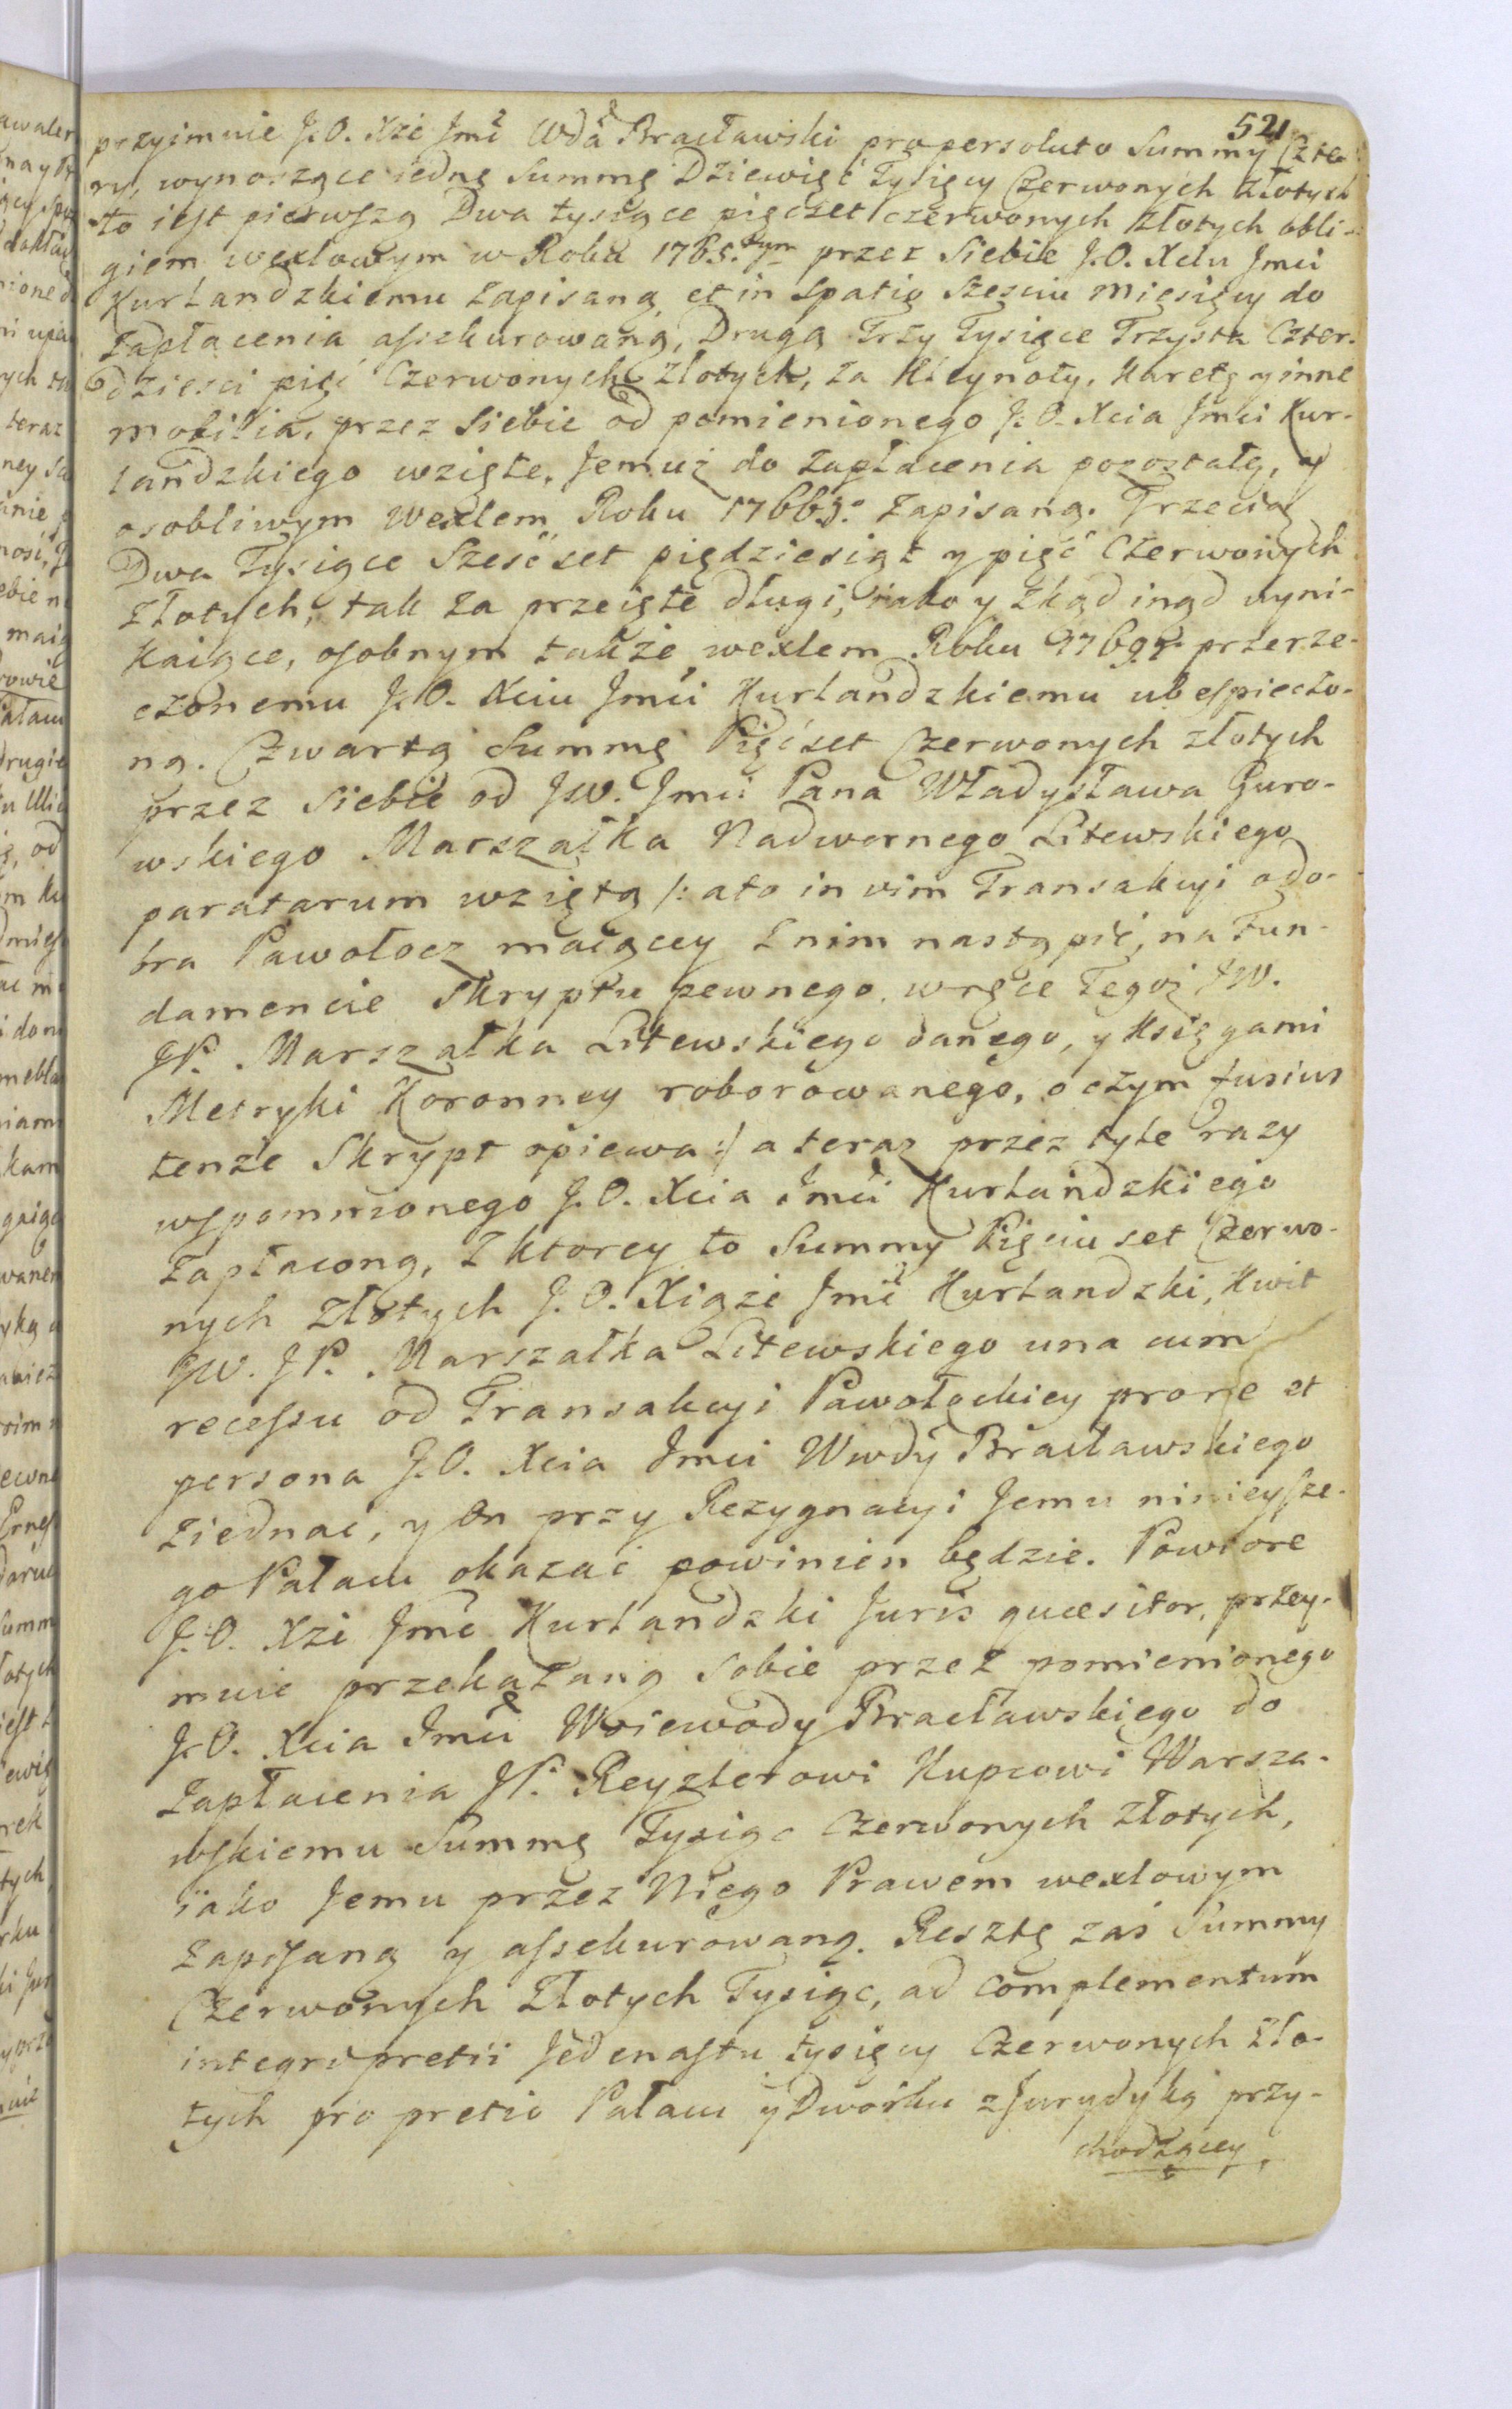 521
przyimuie J. O. Xże Jmć Wdá Bracławski pro persoluto Summy Czte-
ry, wynoszące iedną Summę Dziewięć Tysięcy Czerwonych Złotych
to iest pierwszą Dwa tysiące pięćset czerwonych złotych obli-
giem wexlowym w Roku 1765.tym przez Siebie J. O. Xciu Jmci
Kurlandzkiemu zapisaną, et in Spatio Szesciu Miesięcy do
Zapłacenia assekurowaną, Drugą Trzy Tysiące Trzysta Czter-
dziesci pięć Czerwonych Złotych, za Kleynoty, Karetę y inne
mobilia, przez Siebie od pomienionego J. O. Xcia Jmci Kur-
landzkiego wzięte, Jemuż do Zapłacenia pozostałą, y
osobliwym wexlem Roku 1766 Zapisaną. Trzecią
Dwa Tysiące Sześćset piędziesiąt y pięć Czerwonych
Złotych, tak za przeięte długi, iako y zkąd inąd wyni-
kaiące, osobnym także wexlem Roku przerze-
czonemu J. O. Xciu Jmci Kurlandzkiemu ubespieczo-
ną. Czwartą Summę Pięćset Czerwonych złotych
przez Siebie od JW. Jmci Pana Władysława Guro-
wskiego Marszałka Nadwornego Litewskiego
paratarum wziętą /: a to in vim Transakcyi o do-
bra Pawołocz maiącey z nim nastąpić, na fun-
damencie Skryptu pewnego, w ręce Tegoż JW.
JP. Marszałka Litewskiego danego, y Księgami
Metryki Koronney roborowanego, o czym fusius
tenże Skrypt opiewa :/ a teraz przez tyle razy
wspomnionego J. O. Xcia Jmci Kurlandzkiego
Zapłaconą, z ktorey to Summy Pięciuset Czerwo-
nych Złotych J. O. Xiąże Jmć Kurlandzki, Kwit
JW. JP. Marszałka Litewskiego una cum
recessu od Transakcyi Pawołockiey pro re et
persona J. O. Xcia Jmci Wwdy Bracławskiego
ziednać, y On przy Rezygnacyi Jemu ninieysze-
go Pałacu okazać powinien będzie. Powtore
J. O. Xże Jmć Kurlandzki Juris quæsitor, przey-
muie przekazaną Sobie przez pomienionego
J. O. Xcia Jmci Woiewody Bracławskiego do
Zapłacenia JP. Reyzlerowi Kupcowi Warsza-
wskiemu Summę Tysiąc Czerwonych Złotych,
iako Jemu przez Niego Prawem wexlowym
Zapisaną y assekurowaną. Resztę zaś Summy
Czerwonych Złotych Tysiąc, ad complementum
integri pretii Jedenastu tysięcy Czerwonych Zło-
tych pro pretio Pałacu y Dworku z Jurydyką przy-
chodzącey